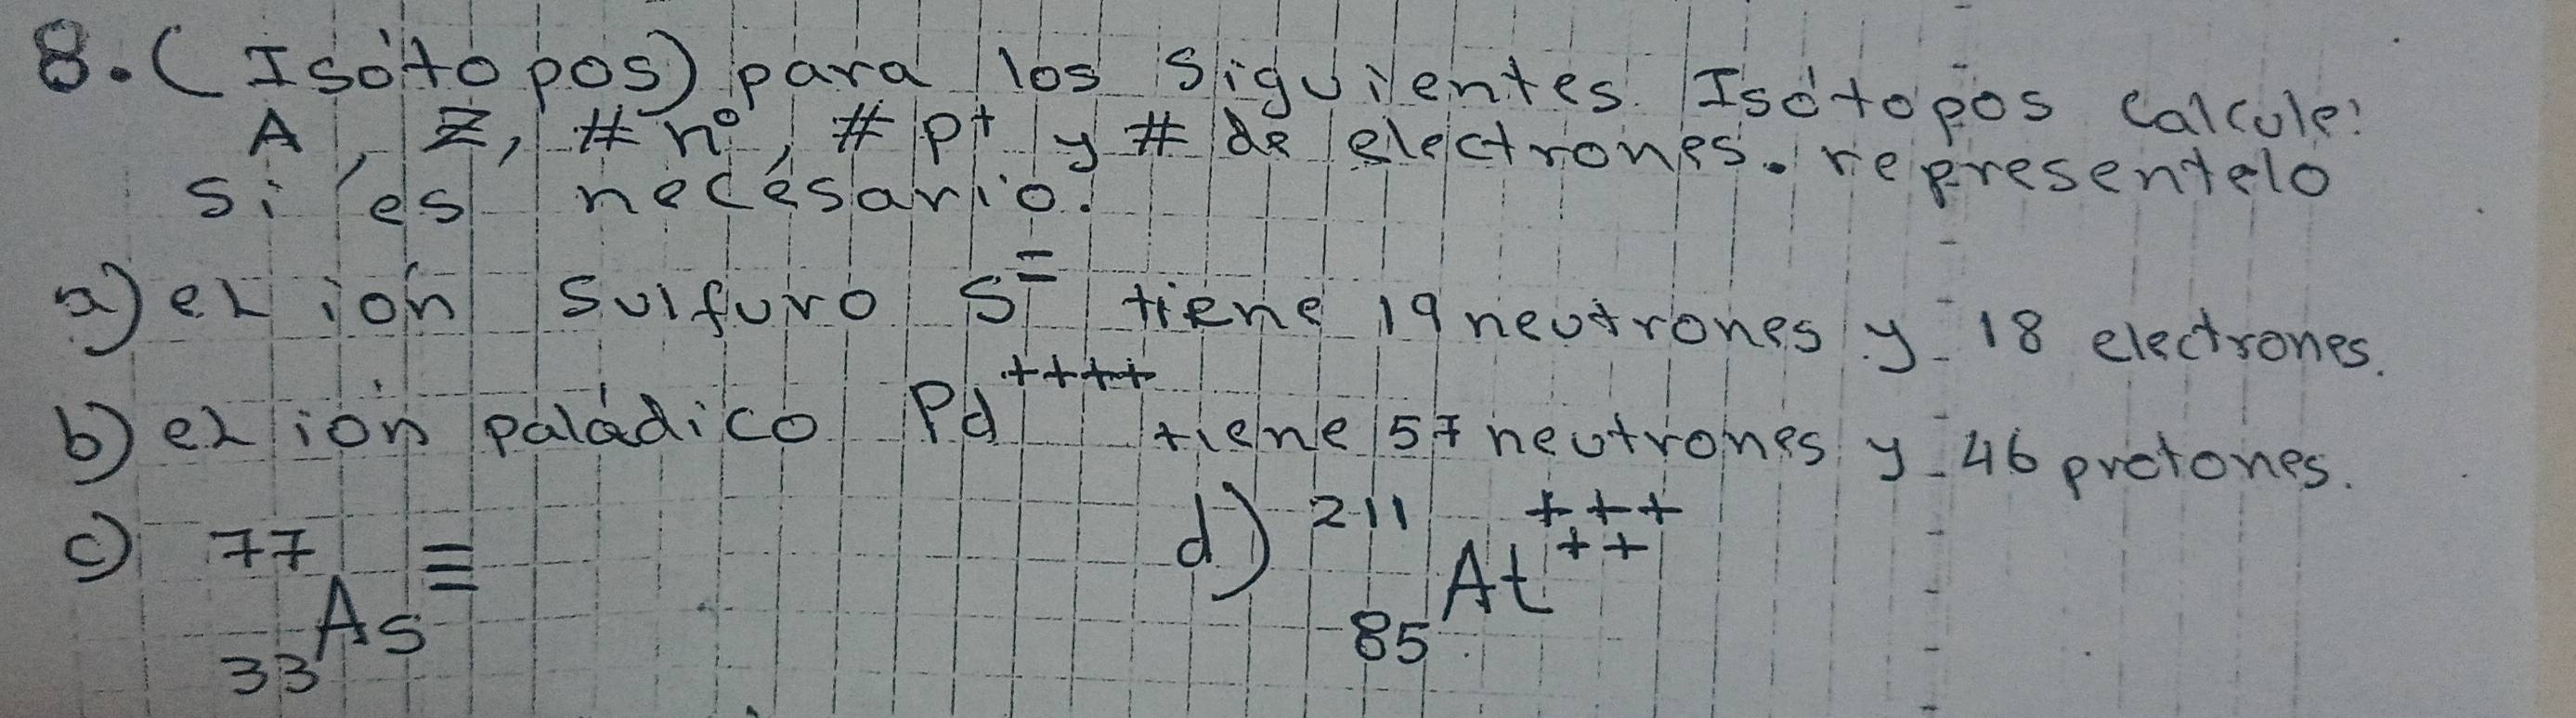 8. (Isótopos) para los siguientes Isótopos calcule:
A, Z, # n°, # p+ y # de electrones. representelo
si es necesario.
a) el ión sulfuro S= tiene 19 neutrones y 18 electrones.
b) el ión paládico Pd++++ tiene 57 neutrones y 46 protones.
c) 77 33 As≡ d) 211 85 At+++++